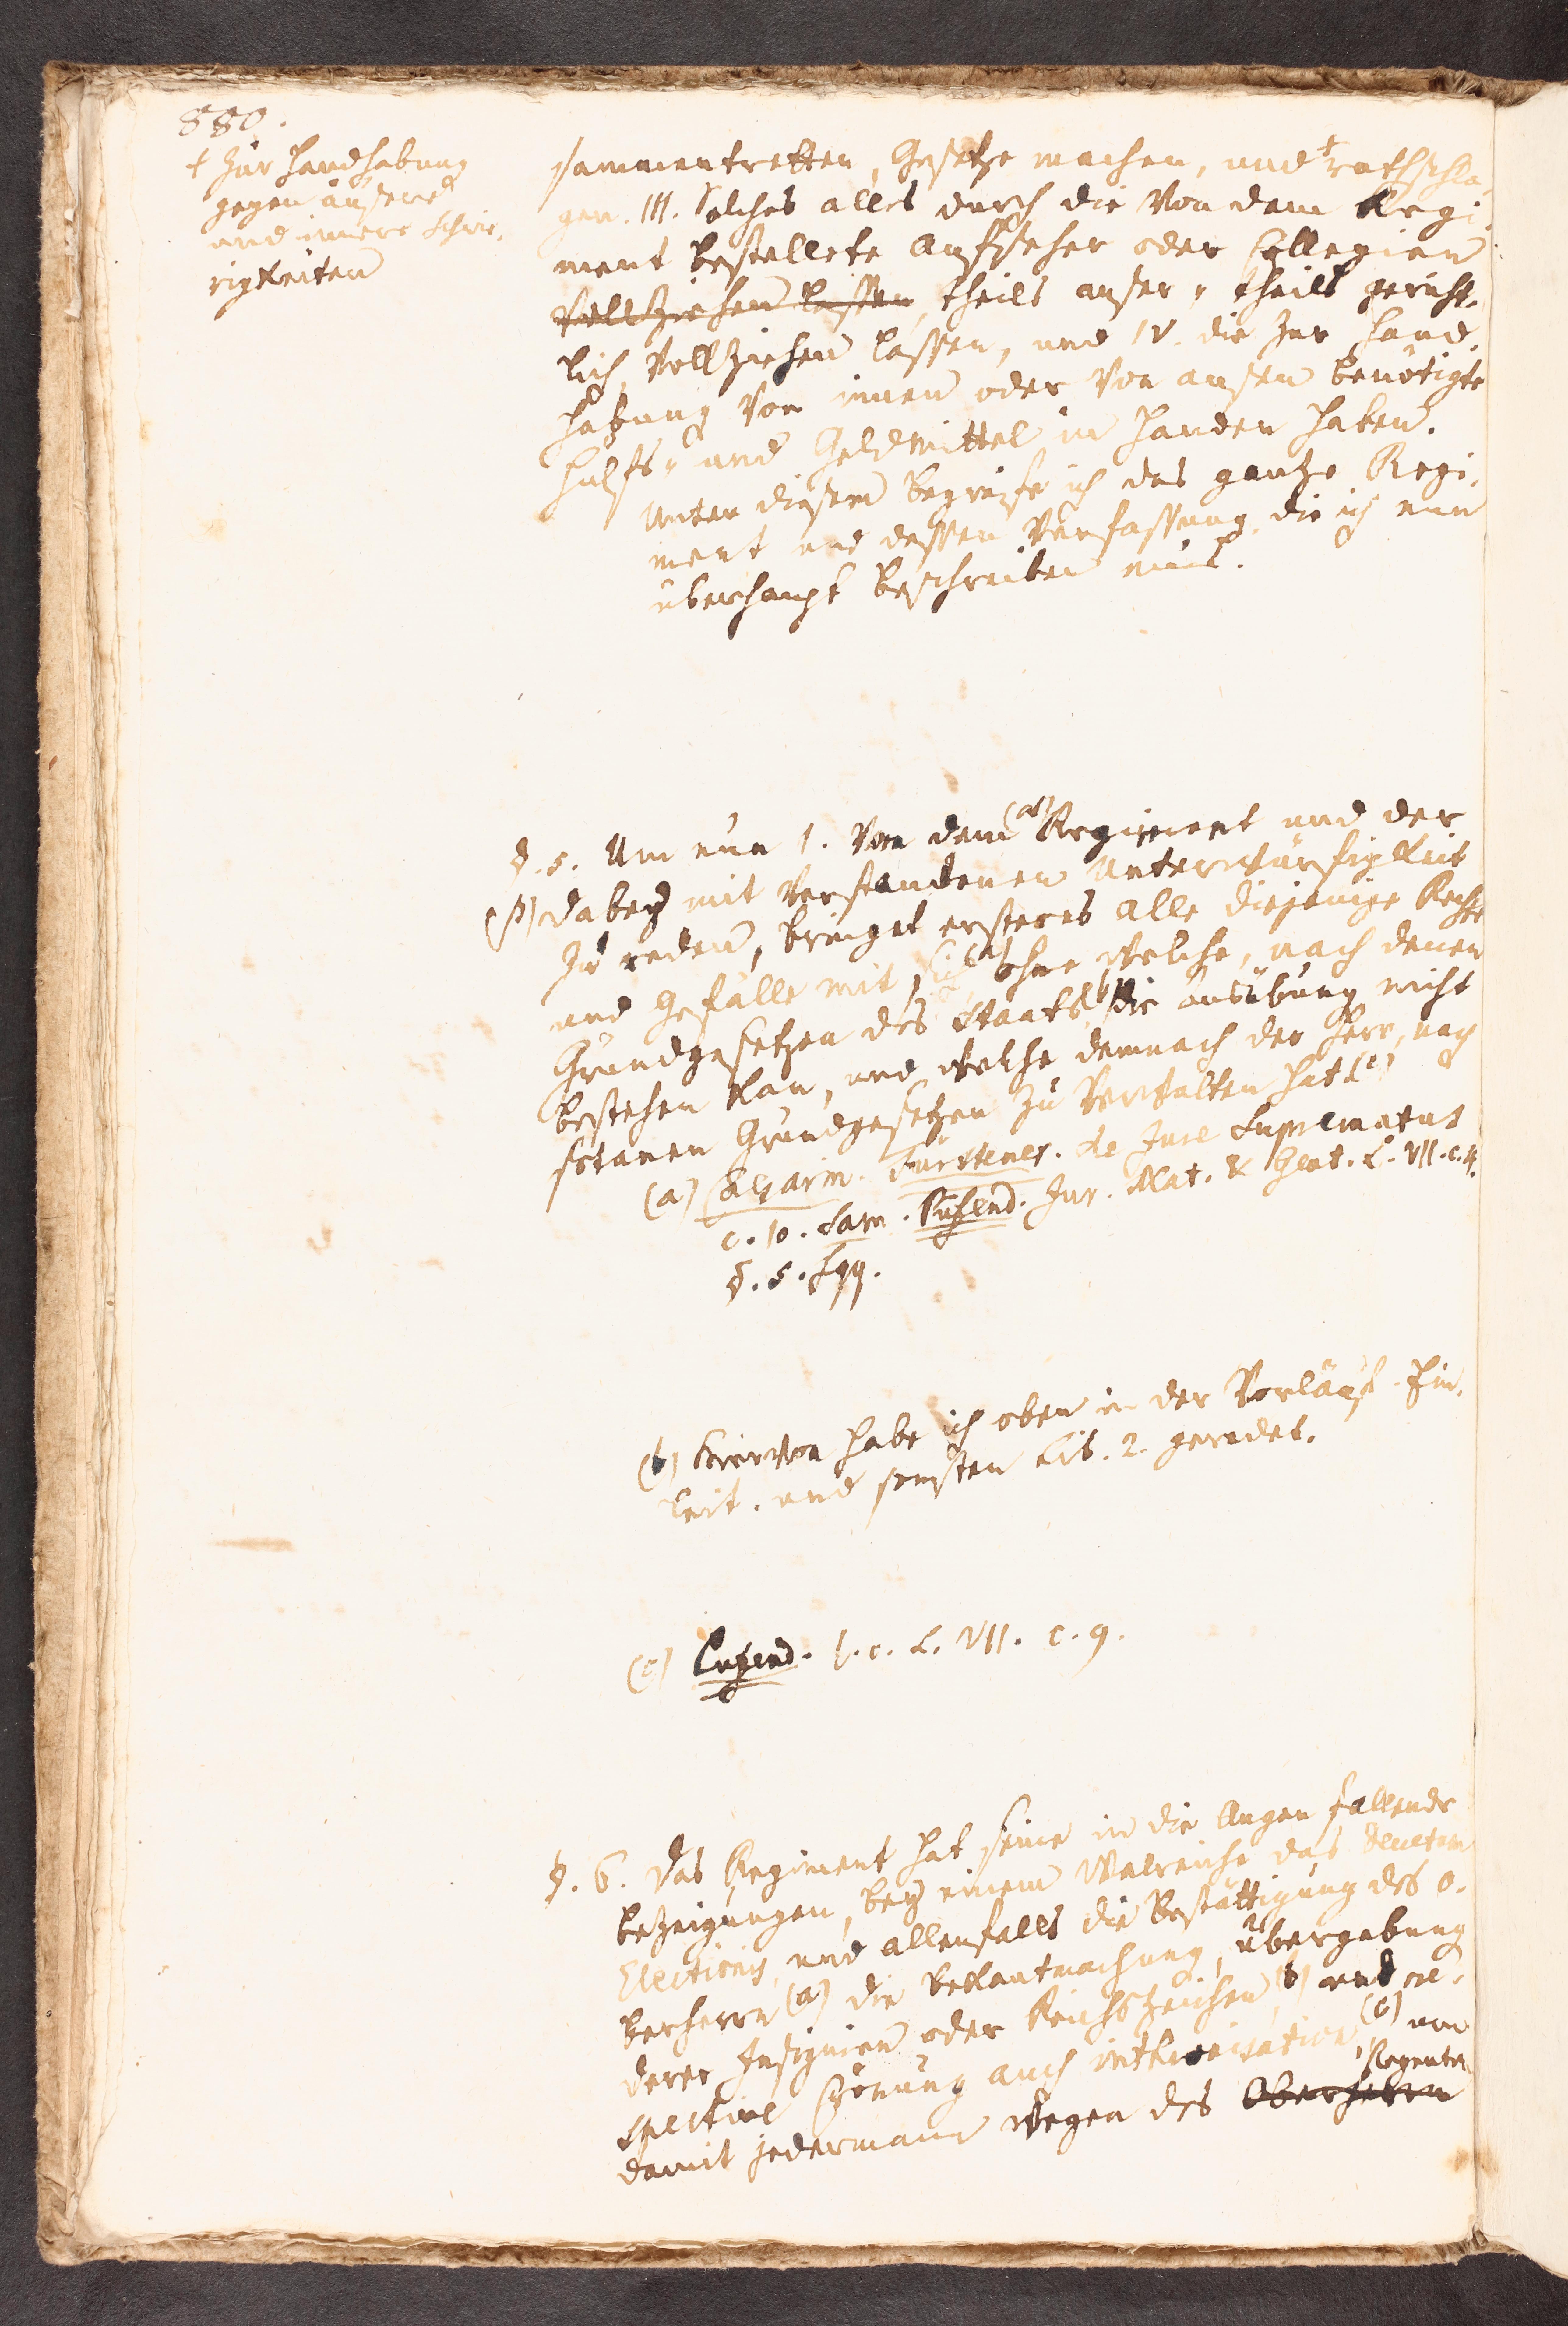 880.
† Zur Handhabung
gegen äusere
und innere Schwie-
rigkeiten
sammentretten, Gesetze machen, und † rathschla-
gen. III. Solches alles durch die von dem Regi-
ment bestellete Aufseher oder Collegien
vollziehen lassen, theils auser- theils gericht-
lich vollziehen lassen, und IV. die zur Hand-
habung von innen oder von ausen benötigte
Hülfs- und Geldmittel in Handen haben.
Unter diesem begreiffe ich das gantze Regi-
ment und dessen Verfassung, die ich nun
überhaupt beschreiben mus.
§. 5. Um nun 1. von dem (α) Regiment und der
(β) dabey mit verstandenen Unterwürfigkeit
zu reden, bringet ersteres alle diejenige Rechte
und Gefälle mit sich, (a) ohne welche, nach denen
Grundgesetzen des Staats, (b) die ausübung nicht
bestehen kan, und welche demnach der Herr, nach
sotanen Grundgesetzen zu verwalten hat. (c)
(a) Caesarin. Fürstener. de Jure Suprematus
c. 10. Sam. Pufend. Jur. Nat. & Gent. L. VII. c. 4.
§. 5. sqq.
(b) Hiervon habe ich oben in der Vorläuf. Ein-
leit. und sonsten Lib. 2. geredet.
(c) Pufend. l. c. L. VII. c. 9.
§. 6. Das Regiment hat seine in die Augen fallende
bezeigungen, bey einem Walreiche das Decretum
Electionis, und allenfalls die Bestättigung des O-
berherrn (a) die bekantmachung, übergebung
derer Insignien oder Reichszeichen, (b) und re-
spective Crönung auch inthronisation, (c) um
Regenten
damit jedermann wegen des Oberherrn